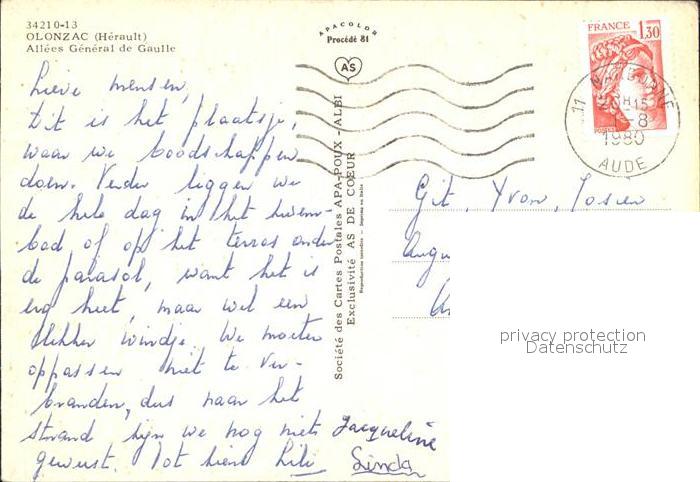 34210-13
OLONZAC (Hérault)
Allées Général de Gaulle
Lieve mensen,
Dit is het plaatsje,
waar we boodschappen
doen. Verder liggen we
de hele dag in het zwem-
bad of op het terras onder
de parasol, want het is
erg heet, maar wel een
lekker windje. We moeten
oppassen niet te ver-
branden, dus naar het
strand zijn we nog niet
geweest. Tot ziens Lili
Jacqueline
Linda
APACOLOR
Procédé 81
AS
Société des Cartes Postales APA-POUX - ALBI
Exclusivité AS DE COEUR
Reproduction interdite - Imprimé en Italie
FRANCE 1,30
POSTES
11 NARBONNE
H15
1-8
1980
AUDE
Git, Yvon, Josien
privacy protection
Datenschutz